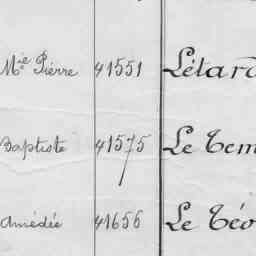 Mie Pierre 41551 Létard
Baptiste 41575 Le Tem
Amédée 41656 Le Téo